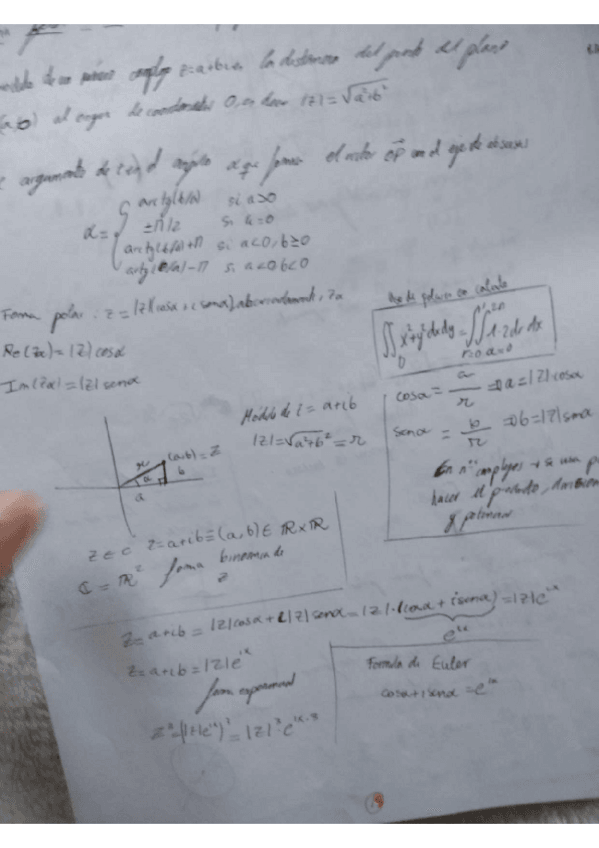 módulo de un número complejo z=a+bi es la distancia del punto del plano
(a,b) al origen de coordenadas O, es decir |z|=√a²+b²
argumento de z es el ángulo α que forma el vector OP con el eje de abscisas
α= arctg(b/a) si a>0
±π/2 si a=0
arctg(b/a)+π si a<0, b≥0
arctg(b/a)-π si a<0 b<0
Forma polar: z=|z|(cosα+i senα) abreviadamente, zα
Re(zα)=|z| cosα
Im(zα)=|z| senα
Uso de polares en calculo
∬ x²+y² dxdy = ∬
r=0 α=0
cosα = a/r ⇒ a=|z|cosα
senα = b/r ⇒ b=|z|senα
En nos complejos → se usa
hacer el producto, división
y potencias
Modulo de z = a+ib
|z|=√a²+b² = r
r (a,b)=z
α b
a
z ∈ C z=a+ib≡(a,b)∈ ℝxℝ
ℂ = ℝ² forma binomia de
z
z=a+ib=|z|cosα+i|z|senα=|z|·(cosα+isenα)=|z|e^iα
e^iα
z=a+ib=|z|e^iα
forma exponencial
z³=(|z|e^iα)³=|z|³·e^iα·3
Formula de Euler
cosα+isenα=e^iα